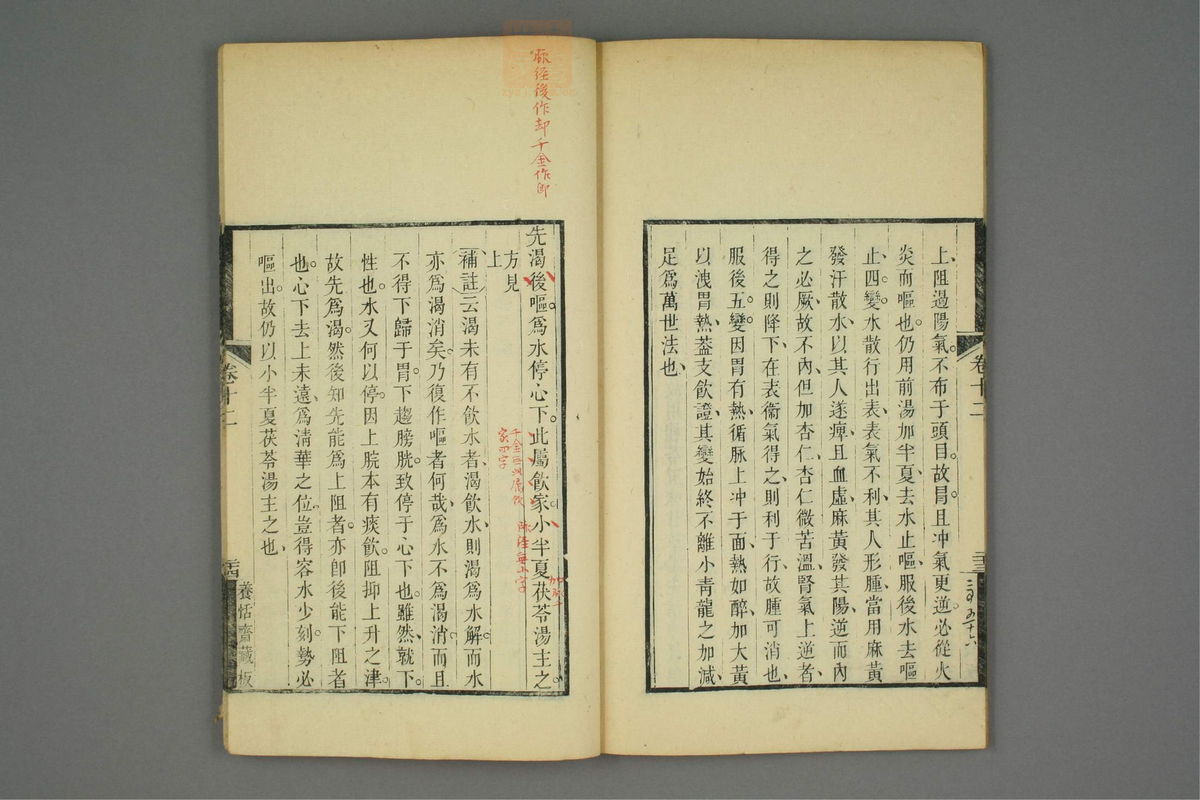 上阻過陽氣不布于頭目。故冐且冲氣更逆。必從火
炎而嘔也。仍用前湯加半夏、去水止嘔、服後水去嘔
止、四變。水散行出表、表氣不利、其人形腫、當用麻黃
發汗散水、以其人遂痺、且血虛、麻黃發其陽、逆而內
之必厥、故不內、但加杏仁、杏仁微苦溫、腎氣上逆者、
得之則降下、在表衞氣得之、則利于行、故腫可消也、
服後五變。因胃有熱、循脉上冲于面、熱如醉、加大黃
以洩胃熱、葢支飲證、其變始終不離小青龍之加減、
足爲萬世法也、
卷十二
二十三
先渴後嘔。爲水停心下。此屬飲家。小半夏茯苓湯主之。
方見
上
補註云渴未有不飲水者、渴飲水、則渴爲水解。而水
亦爲渴消矣。乃復作嘔者何哉、爲水不爲渴消。而且
不得下歸于胃。下趨膀胱。致停于心下也。雖然、就下。
性也。水又何以停。因上脘本有痰飲。阻抑上升之津。
故先爲渴。然後知先能爲上阻者。亦卽後能下阻者
也。心下去上未遠、爲淸華之位、豈得容水少刻。勢必
嘔出。故仍以小半夏茯苓湯主之也、
卷十二
二十四
養恬齋藏板
脈經後作却千金作卽
千金無此屬飲
家四字
脉經無下字